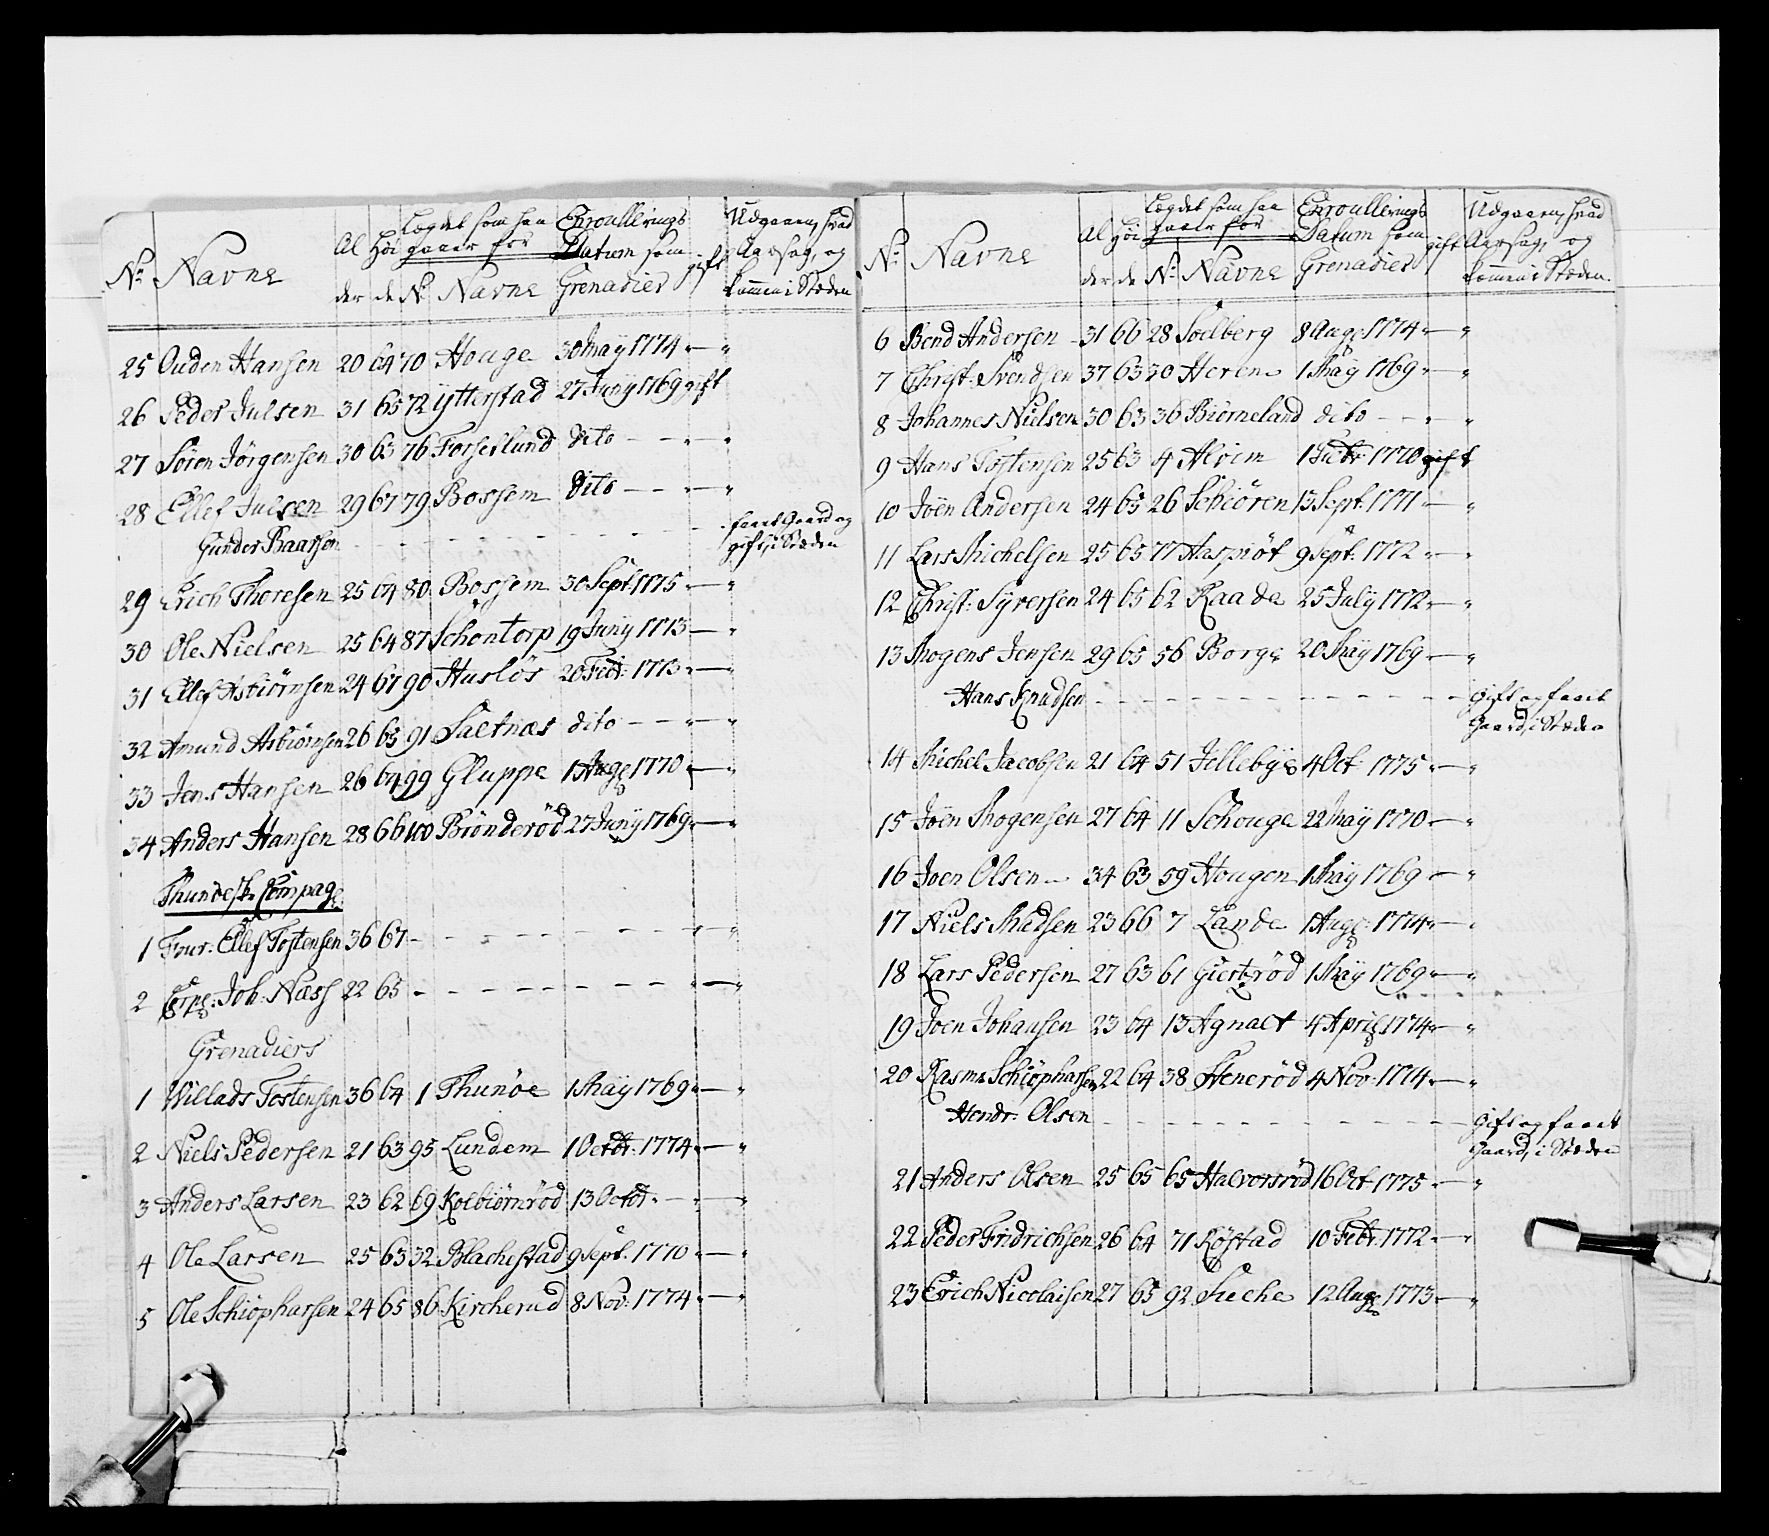 No Navne Al der Høi de Lægdet som han gaaer for No Navne Enroullerings Datum som Grenadier gift Udgaaen, hvad Aarsag, og kommen i Stæden
25 Ouden Hansen 20 64 70 Houge 30 May 1774 — "
26 Peder Julsen 31 65 72 Ytterstad 27 Juny 1769 gift
27 Sören Jörgensen 30 63 76 Forsetlund dito - - — "
28 Ellef Julsen 29 67 79 Bossem dito - - — "
Gunder Baarsen - - - - - - faaet Gaard og gift, i Stæden
29 Erich Thoresen 25 64 80 Bossem 30 Sept: 1775 — "
30 Ole Nielsen 25 64 87 Schöntorp 19 Juny 1773 — "
31 Ellef Asbiörnsen 24 67 90 Huslös 20 Febr: 1773 — "
32 Amund Asbiörnsen 26 63 91 Saltnæs dito - - — "
33 Jens Hansen 26 64 99 Gluppe 1 Aug: 1770 — "
34 Anders Hansen 28 66 100 Biönderöd 27 Juny 1769 — "
Thunöeske Compag:
1 Four: Ellef Tostensen 36 67 - - - - - -
2 Corp: Joh: Næss 22 65 - - - - - - — "
Grenadiers
1 Willads Tostensen 36 64 1 Thunöe 1 May 1769 — "
2 Niels Pedersen 21 63 95 Lundem 1 Octbr: 1774 — "
3 Anders Larsen 23 62 69 Kolbiörnröd 13 Octbr. - — "
4 Ole Larsen 25 63 32 Blachestad 9 Sept: 1770 — "
5 Ole Schiöpharsen 24 65 86 Kircherud 8 Nov: 1774 — "
No: Navne Al der Høi de Lægdet som han gaaer for No Navne Enroullerings Datum som Grenadier gift Udgaaen, hvad Aarsag, og kommen i Stæden.
6 Bend Andersen 31 66 28 Soelberg 8 Aug: 1774 — "
7 Christ: Svendsen 37 63 30 Heren 1 May 1769 — "
8 Johannes Nielsen 30 63 36 Biörneland dito - - "
9 Hans Tostensen 25 63 4 Alvim 1 Febr: 1770 gift
10 Jöen Andersen 24 65 26 Schiören 13 Sept: 1771 — "
11 Lars Michelsen 25 65 77 9 Sept: 1772 — "
12 Christ: Syversen 24 65 62 Raade 25 July 1772 — "
13 Mogens Jensen 29 65 56 Borge 20 May 1769 — "
Hans Knudsen - - - - - - Gift og faaet Gaard, i Stæden
14 Michel Jacobsen 21 64 51 Jellebye 4 Oct: 1775 — "
15 Jöen Mogensen 27 64 11 Schouge 22 May 1770 — "
16 Joen Olsen 34 63 59 Hougen 1 May 1769 — "
17 Niels Madsen 23 66 7 Lande 1 Aug: 1774 — "
18 Lars Pedersen 27 63 61 Giertröd 1 May 1769 — "
19 Joen Johansen 23 64 13 Agnalt 4 April 1774 — "
20 Rasm: Schiöpharsen 22 64 38 Steneröd 4 Nov: 1774 — "
Hendr: Olsen - - - - - - Gift og faaet Gaard, i Stæden
21 Anders Olsen 25 65 65 Halvorsröd 16 Oct: 1775 — "
22 Peder Fridrichsen 26 64 71 Röstad 10 Febr: 1772 — "
23 Erich Nicolaisen 27 65 92 12 Aug: 1773 — "